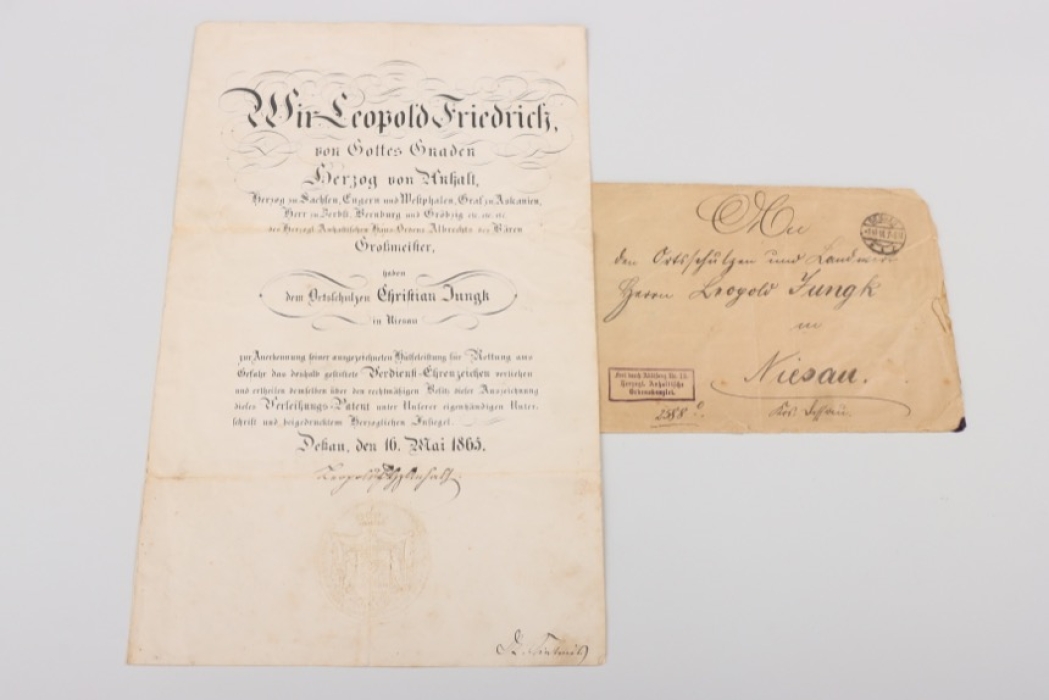 Wir Leopold Friedrich,
von Gottes Gnaden
Herzog von Anhalt,
Herzog zu Sachsen, Engern und Westphalen, Graf zu Askanien,
Herr zu Zerbst, Bernburg und Gröbzig etc. etc. etc.
des Herzogl. Anhaltischen Haus-Ordens Albrechts des Bären
Großmeister,
haben
dem Ortsschulzen Christian Jungk
in Niesau
zur Anerkennung seiner ausgezeichneten Hülfeleistung für Rettung aus
Gefahr das deshalb gestiftete Verdienst-Ehrenzeichen verliehen
und ertheilen demselben über den rechtmäßigen Besitz dieser Auszeichnung
dieses Verleihungs-Patent unter Unserer eigenhändigen Unter-
schrift und beigedrucktem Herzoglichen Insiegel.
Deßau, den 16. Mai 1865.
Leopold Anhalt
An
den Ortsschulzen und Landwirt
Herrn Leopold Jungk
in
Niesau.
Krs. Dessau
Frei durch Ablösung Nr. 13.
Herzogl. Anhaltische
Ordenskanzlei.
2588